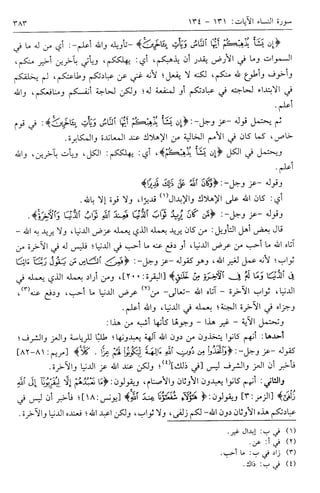 سورة النساء الآيات: ١٣١ - ١٣٤ ٣٨٣
﴿إن يَشَأْ يُذْهِبْكُمْ أَيُّهَا النَّاسُ وَيَأْتِ بِآخَرِينَ﴾ -تأويله والله أعلم-: أي من له ما في
السموات وما في الأرض يقدر أن يذهبكم، أي: يهلككم، ويأتي بآخرين أخير منكم،
وأخوف وأطوع لله منكم، لكنه لا يفعل؛ لأنه غني عن عبادتكم وطاعتكم، لم يخلقكم
في الابتداء لحاجته في عبادتكم أو لمنفعة له؛ ولكن لحاجة أنفسكم ومنافعكم، والله
أعلم.
ثم يحتمل قوله -عز وجل-: ﴿إِن يَشَأْ يُذْهِبْكُمْ أَيُّهَا النَّاسُ وَيَأْتِ بِآخَرِينَ﴾: في قوم
خاص، كما كان في الأمم الخالية من الإهلاك عند المعاندة والمكابرة.
ويحتمل في الكل ﴿إِن يَشَأْ يُذْهِبْكُمْ﴾، أي: يهلككم: الكل، ويأت بآخرين، والله
أعلم.
وقوله -عز وجل-: ﴿وَكَانَ اللَّهُ عَلَىٰ ذَٰلِكَ قَدِيرًا﴾
أي: كان الله على الإهلاك والإبدال(١) قديرًا، ولا قوة إلا بالله.
وقوله -عز وجل-: ﴿مَّن كَانَ يُرِيدُ ثَوَابَ الدُّنْيَا فَعِندَ اللَّهِ ثَوَابُ الدُّنْيَا وَالْآخِرَةِ﴾.
قال بعض أهل التأويل: من كان يريد بعمله الذي يعمله عرض الدنيا، ولا يريد به الله -
آتاه الله ما أحب من عرض الدنيا، أو دفع عنه ما أحب في الدنيا؛ فليس له في الآخرة من
ثواب؛ لأنه عمل لغير الله، وهو كقوله -عز وجل-: ﴿فَمِنَ النَّاسِ مَن يَقُولُ رَبَّنَا آتِنَا
فِي الدُّنْيَا وَمَا لَهُ فِي الْآخِرَةِ مِنْ خَلَاقٍ﴾ [البقرة: ٢٠٠]، ومن أراد بعمله الذي يعمله في
الدنيا، ثواب الآخرة - آتاه الله -تعالى- من(٢) عرض الدنيا ما أحب، ودفع عنه(٣)،
وجزاه في الآخرة الجنة؛ بعمله في الدنيا، والله أعلم.
وتحتمل الآية - غير هذا - وجوهًا كأنها أشبه من هذا:
أحدها: أنهم كانوا يتخذون من دون الله آلهة يعبدونها؛ طلبًا للرياسة والعز والشرف؛
كقوله -عز وجل-: ﴿وَاتَّخَذُوا مِن دُونِ اللَّهِ آلِهَةً لِّيَكُونُوا لَهُمْ عِزًّا . كَلَّا﴾ [مريم: ٨١-٨٢]
فأخبر أن العز والشرف ليس [في ذلك](٤)؛ ولكن عند الله عز الدنيا والآخرة.
والثاني: أنهم كانوا يعبدون الأوثان والأصنام، ويقولون: ﴿مَا نَعْبُدُهُمْ إِلَّا لِيُقَرِّبُونَا إِلَى اللَّهِ
زُلْفَىٰ﴾ [الزمر: ٣] ويقولون: ﴿هَٰؤُلَاءِ شُفَعَاؤُنَا عِندَ اللَّهِ﴾ [يونس: ١٨]؛ فأخبر أن ليس في
عبادتكم هذه الأوثان دون الله- لكم زلفى، ولا ثواب، ولكن اعبدوا الله؛ فعنده الدنيا والآخرة.
(١) في ب: إبدال غير.
(٢) في أ: عن.
(٣) زاد في ب: ما أحب.
(٤) في ب: ذاك.